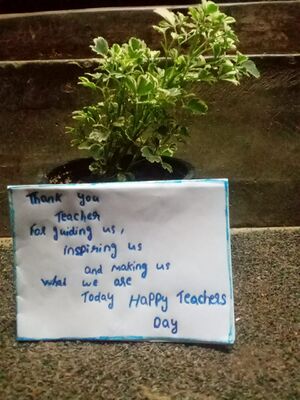 Thank you
Teacher
For guiding us,
inspiring us
and making us
what we are
Today Happy Teachers
Day